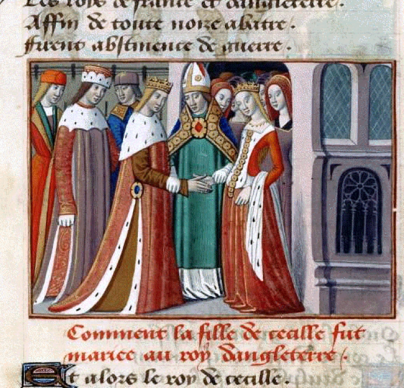 Les roys de france et dangleterre.
Affin de toute noise abatre.
Furent abstinence de guerre.
Comment la fille de cecille fut
mariee au roy dangleterre.
Et alors le roy de cecille